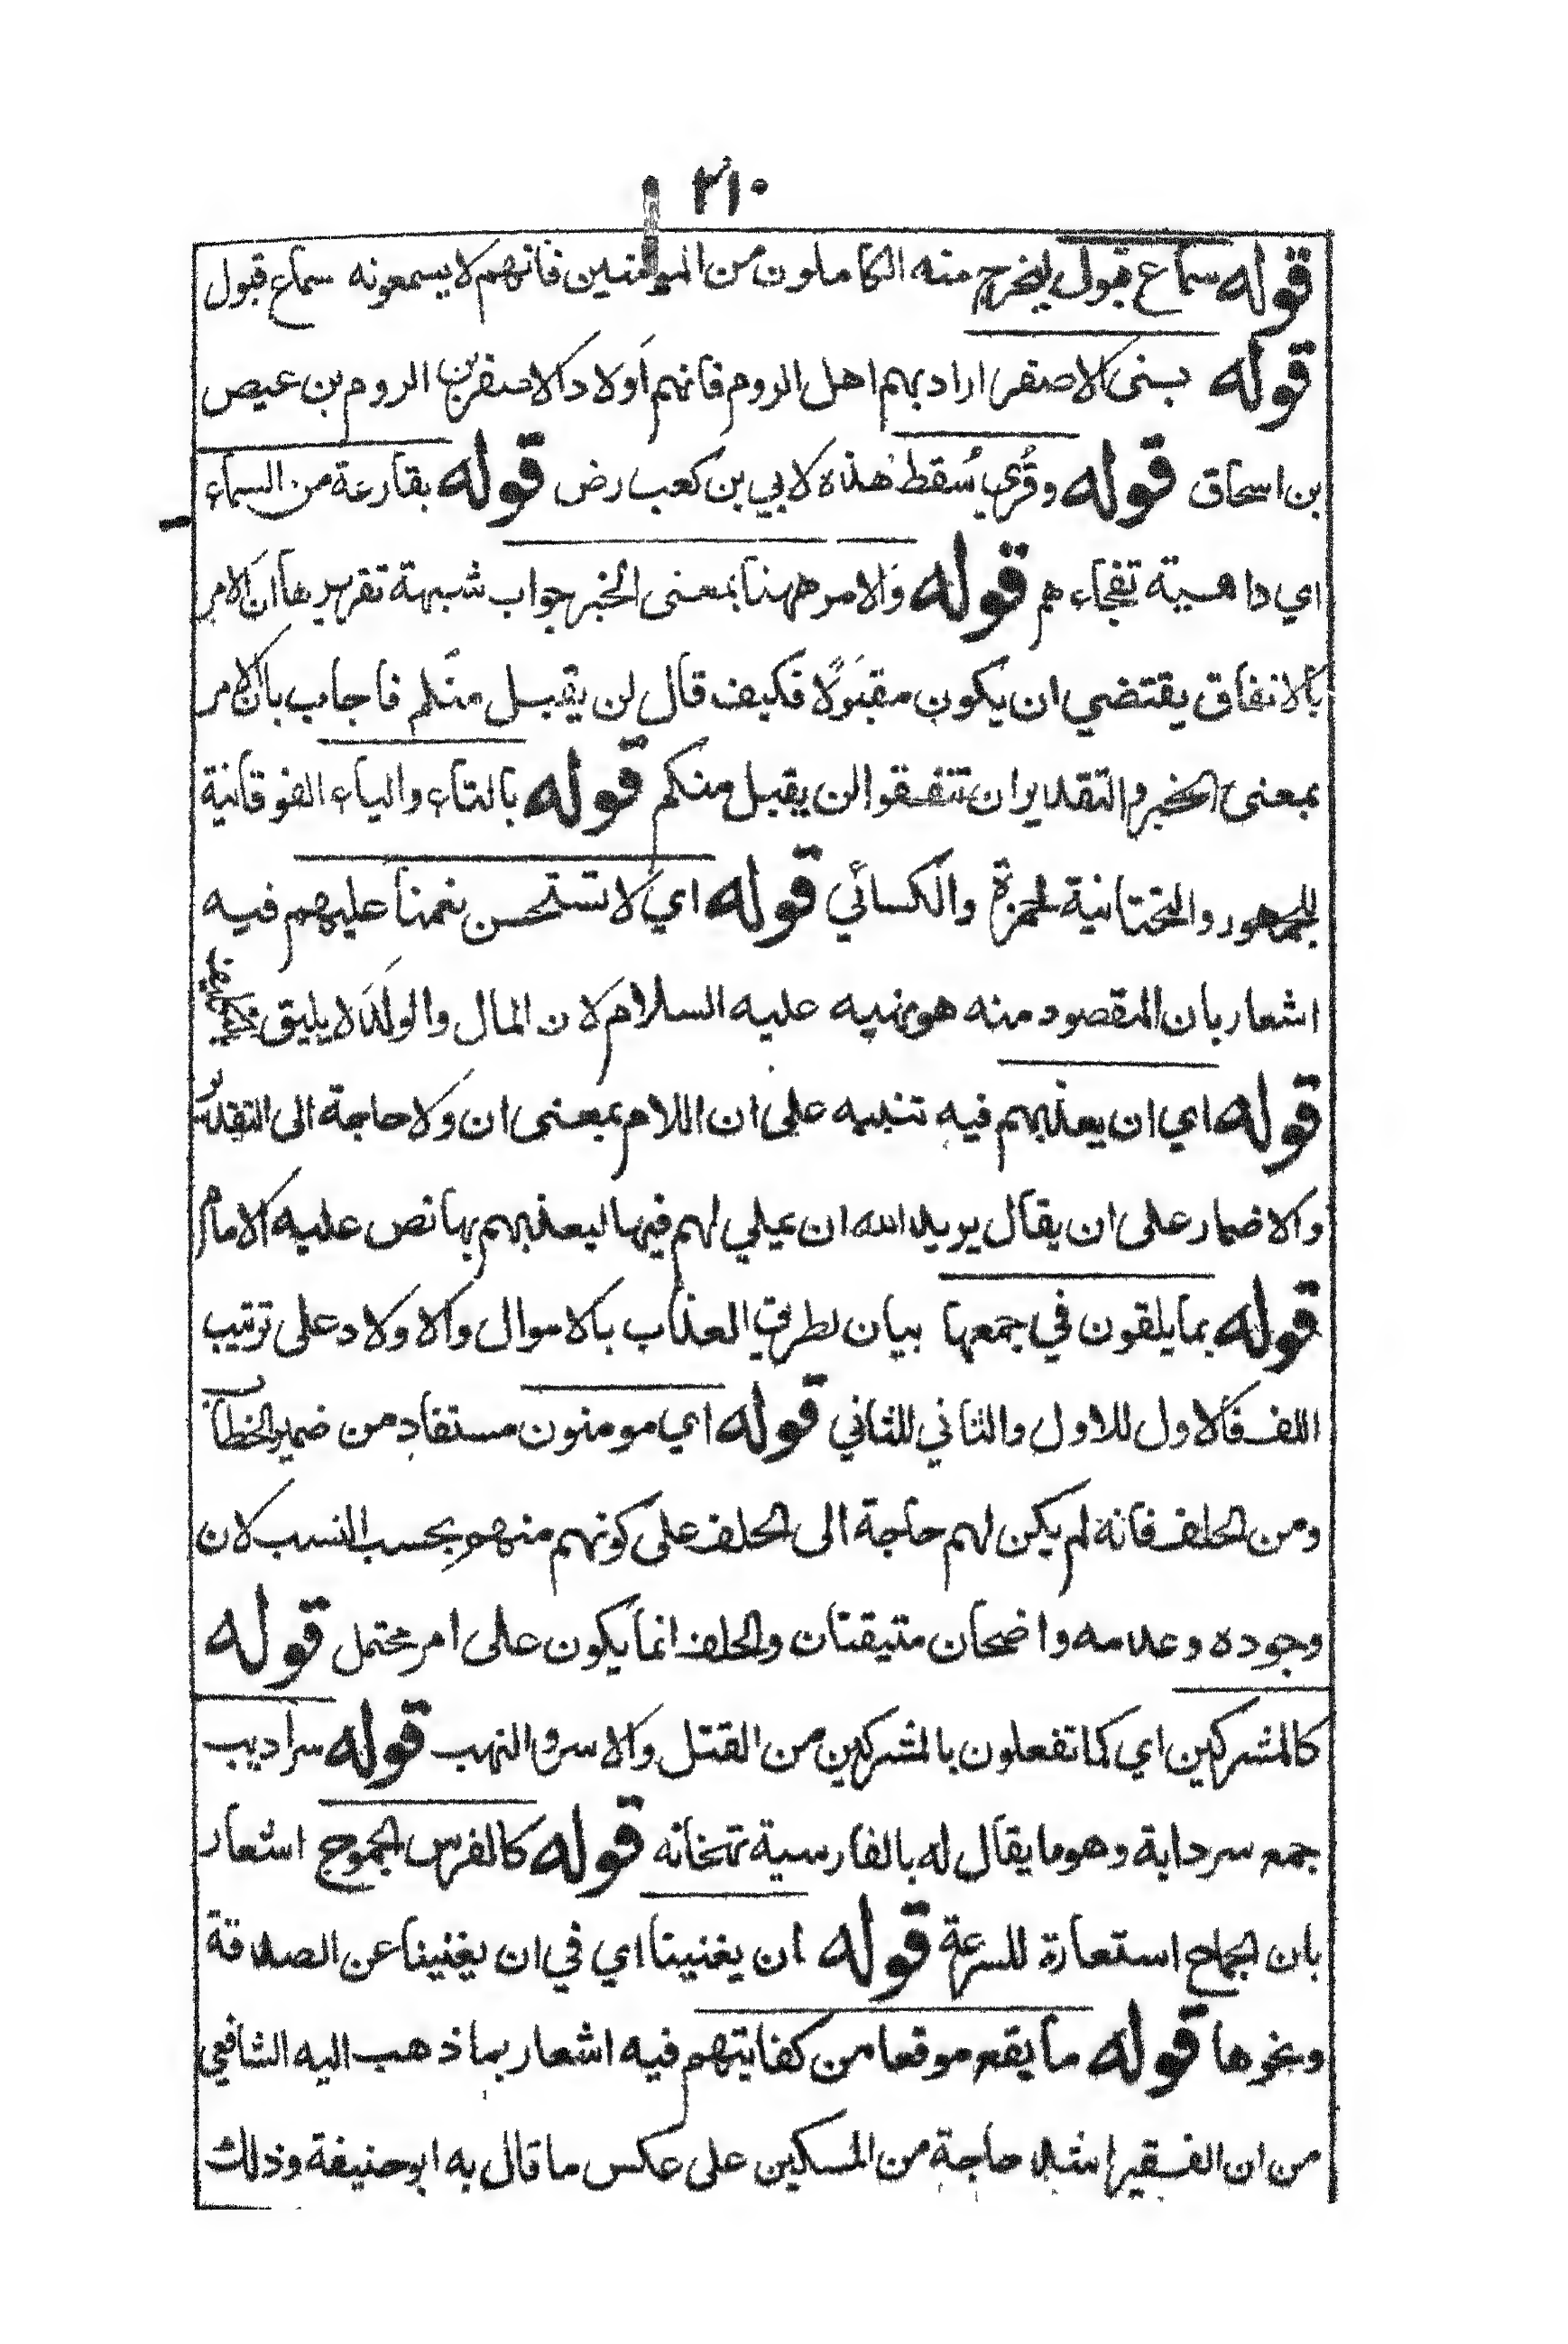 ٣١٠
قوله سماع قبول ليخرج منه الكاملون من المومنين فانهم لا يسمعونه سماع قبول
قوله بنى الاصفر اراد بهم اهل الروم فانهم اولاد الاصفر بن الروم بن عيص
بن اسحاق قوله وقرئ سُقط هٰذه لابي بن كعب رض قوله بقارعة من السماء
اي داهية تفجاءهم قوله والامر ههنا بمعنى الخبر جواب شبهة تقريرها ان الامر
بالانفاق يقتضي ان يكون مقبولا فكيف قال لن يقبل منكم فاجاب بان الامر
بمعنى الخبر والتقدير ان تنفقوا لن يقبل منكم قوله بالتاء والياء الفوقانية
للجمهور والتحتانية لحمزة والكسائي قوله اي لا تستحسن نعمنا عليهم فيه
اشعار بان المقصود منه هو نهيه عليه السلام لان المال والولد لا يليق
قوله اي ان يعذبهم فيه تنبيه على ان اللام بمعنى ان ولا حاجة الى التقدير
والاضمار على ان يقال يريد الله ان يملي لهم فيها ليعذبهم بها نص عليه الامام
قوله بما يلقون في جمعها بيان لطريق العذاب بالاموال والاولاد على ترتيب
اللف فالاول للاول والثاني للثاني قوله اي مومنون مستفاد من ضمير الخطاب
ومن الحلف فانه لم يكن لهم حاجة الى الحلف على كونهم منهم بحسب النسب لان
وجوده وعدمه واضحان متيقنان والحلف انما يكون على امر محتمل قوله
كالمشركين اي كما تفعلون بالمشركين من القتل والاسر والنهب قوله سراديب
جمع سردابة وهو ما يقال له بالفارسية تهخانه قوله كالفرس الجموح اشعار
بان الجماح استعارة للسرعة قوله ان يغنينا اي في ان يغنينا عن الصداقة
ونحوها قوله ما يقع موقعا من كفايتهم فيه اشعار بما ذهب اليه الشافعي
من ان الفقير اشد حاجة من المسكين على عكس ما قال به ابو حنيفة وذلك